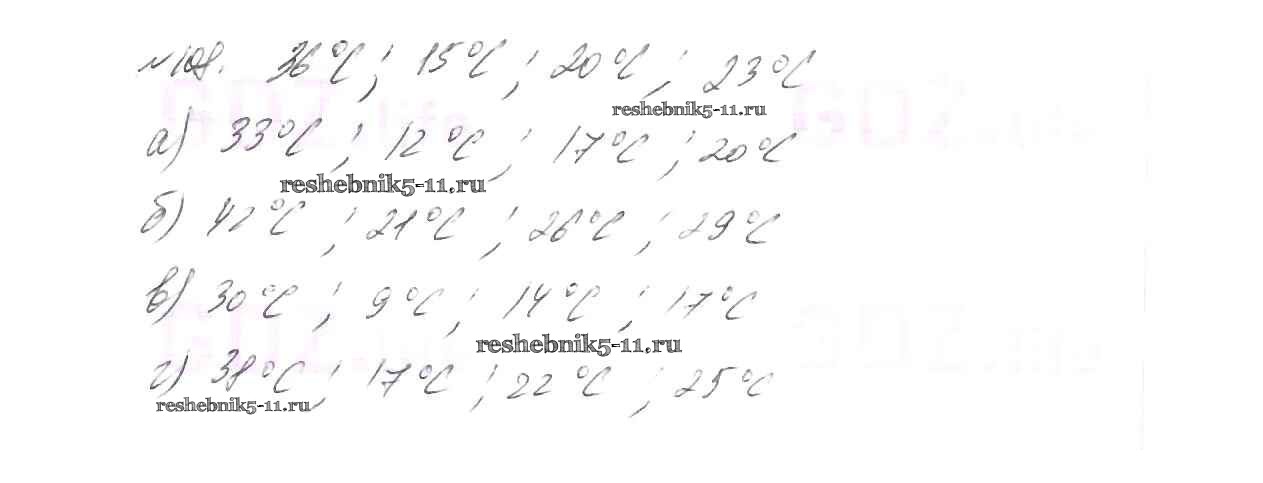 №108. 36°C; 15°C; 20°C; 23°C
reshebnik5-11.ru
а) 33°C; 12°C; 17°C; 20°C
reshebnik5-11.ru
б) 42°C; 21°C; 26°C; 29°C
в) 30°C; 9°C; 14°C; 17°C
reshebnik5-11.ru
г) 38°C; 17°C; 22°C; 25°C
reshebnik5-11.ru